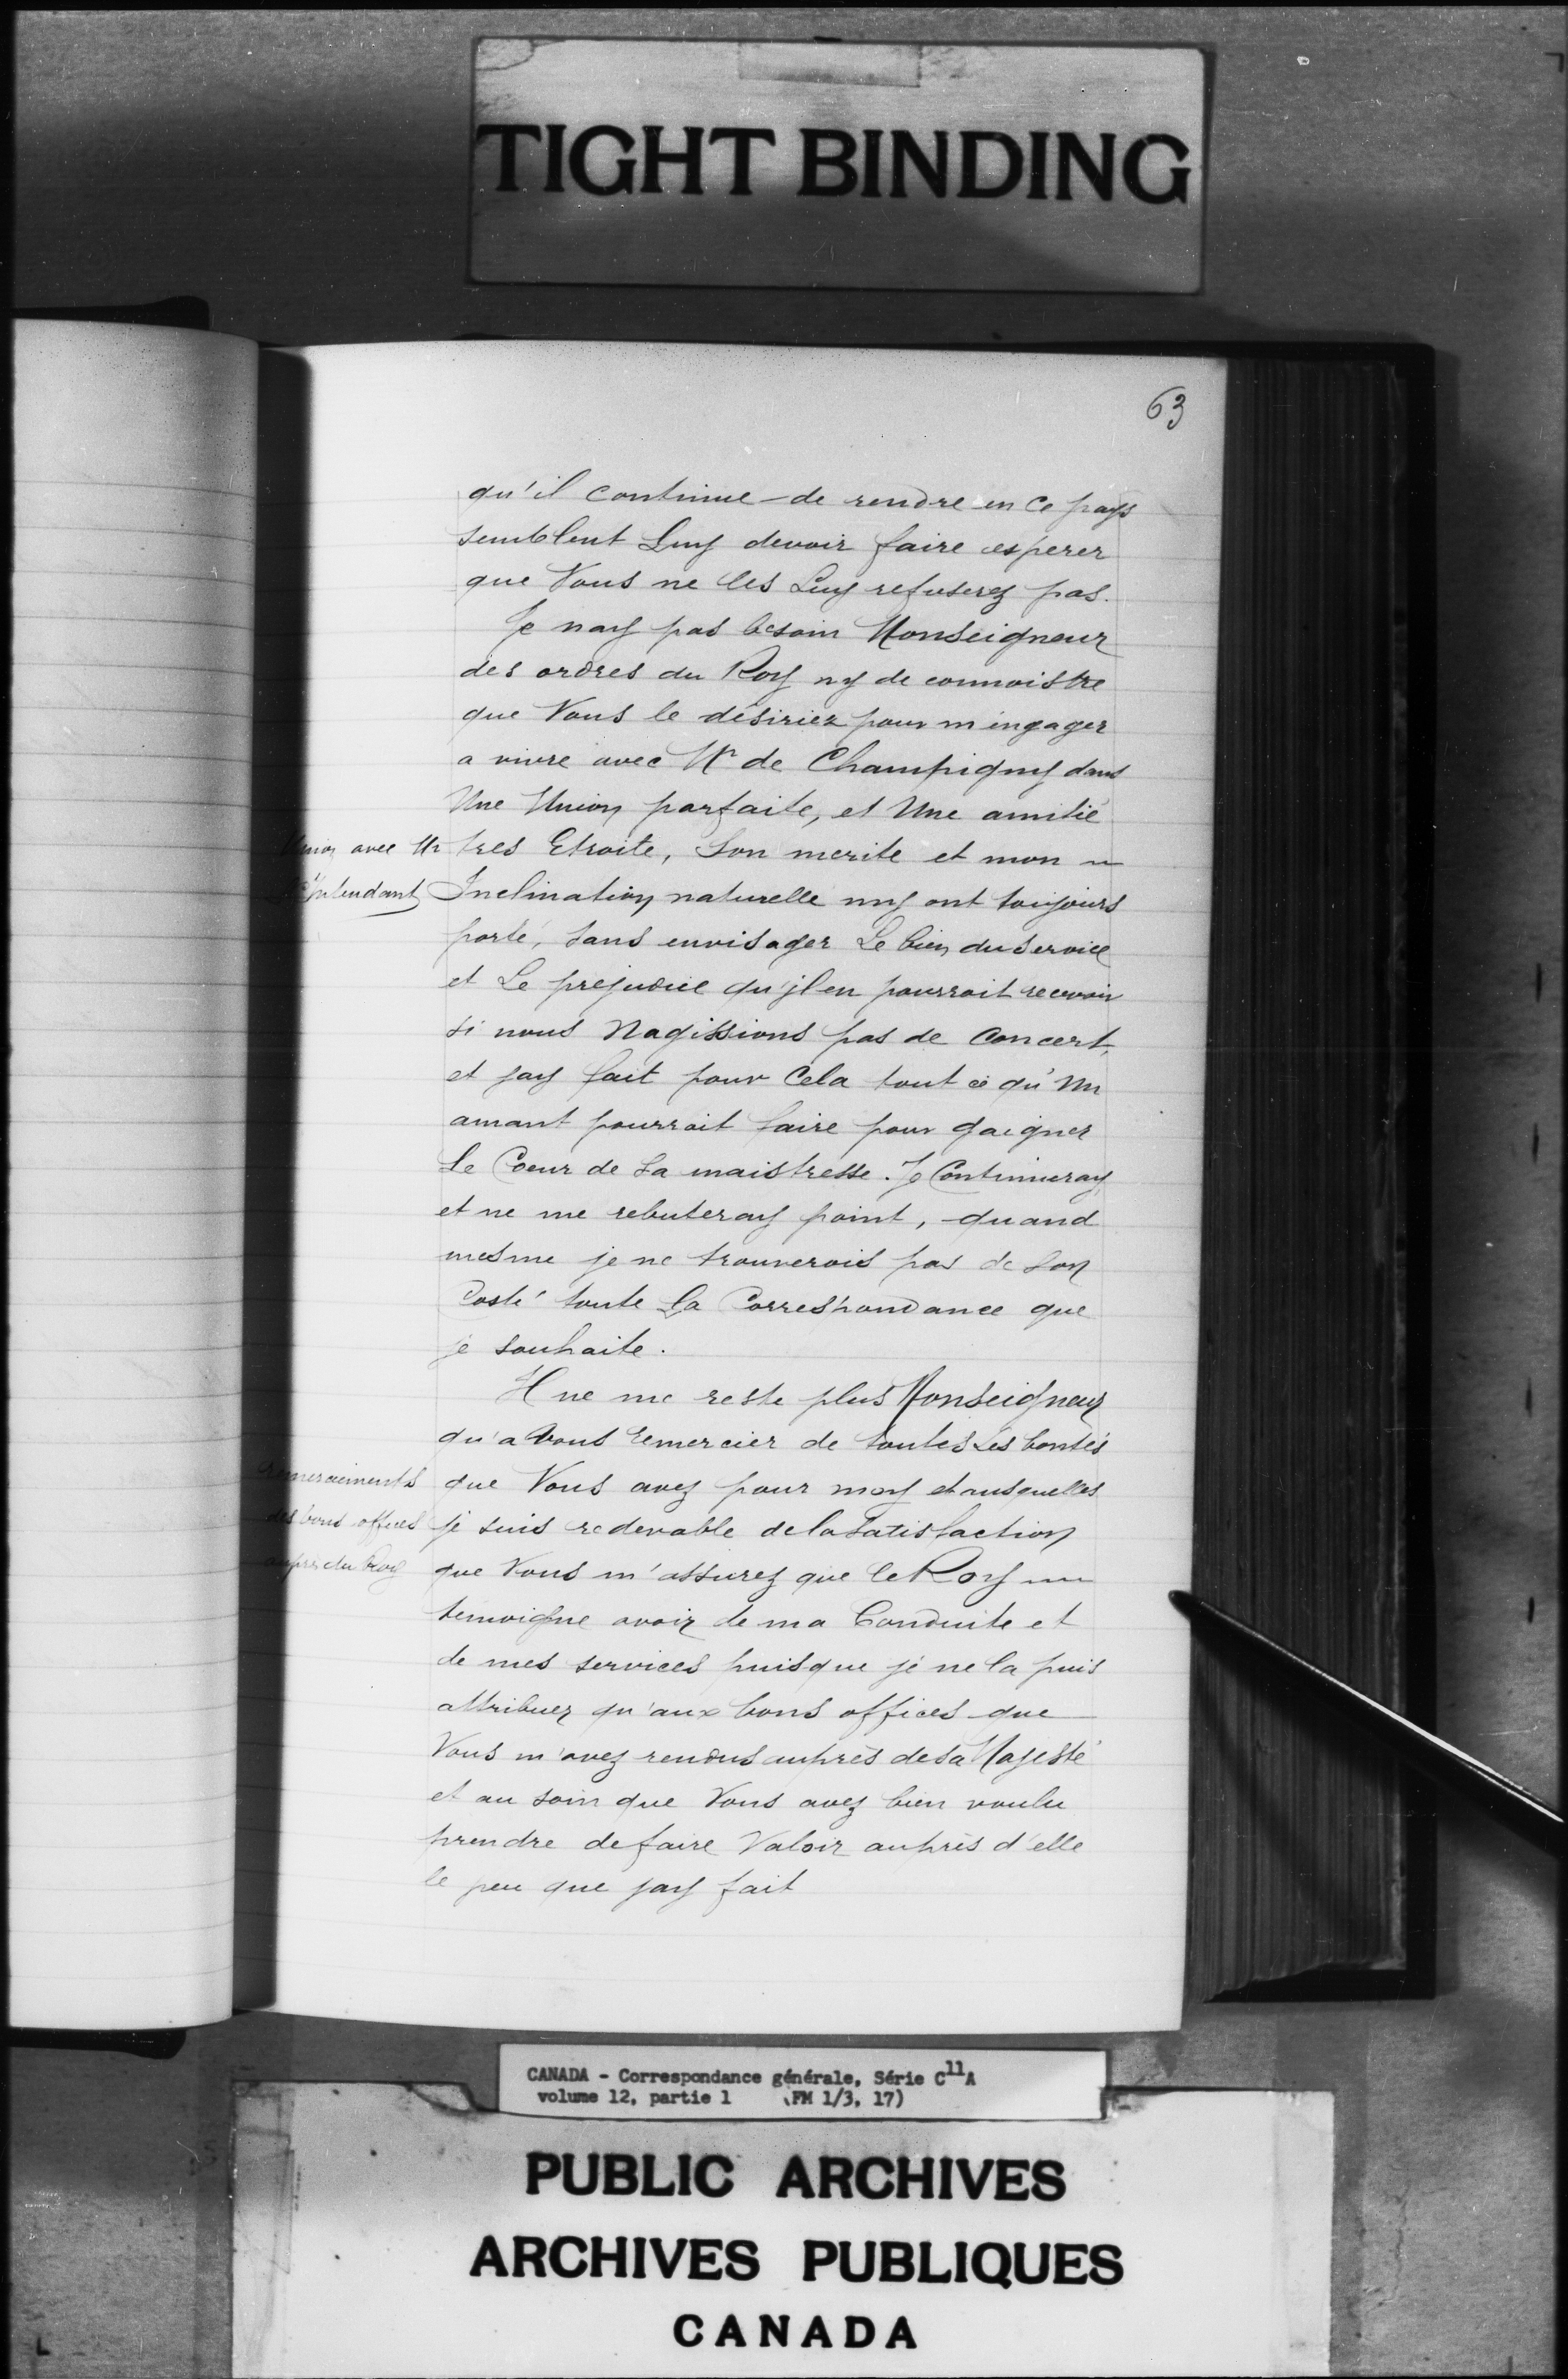 TIGHT BINDING
63
qu'il continue de rendre en ce pays
semblent Luy devoir faire esperer
que Vous ne les Luy refuserez pas.
Je nay pas besoin Monseigneur
des ordres du Roy ny de connoistre
que Vous le désiriez pour m'engager
a vivre avec Mr de Champigny dans
Une Union parfaite, et Une amitié
Union avec Mr
l'Intendant
tres Etroite, Son merite et mon
Inclination naturelle my ont toujours
porté, sans envisager Le bien du service
et Le prejudice qu'jl en pourroit recevoir
si nous Nagissions pas de Concert,
et jay fait pour Cela tout ce qu'Un
amant pourroit faire pour gaigner
Le Coeur de Sa maistresse. Je Continueray
et ne me rebuteray point, quand
mesme je ne trouverois pas de Son
Costé toute La Correspondance que
je souhaite.
Il ne me reste plus Monseigneur
qu'a Vous remercier de toutes Les bontés
remerciements
des bons offices
aupres du Roy
que Vous avez pour moy et ausquelles
je suis redevable de la Satisfaction
que Vous m'assurez que le Roy
temoigne avoir de ma Conduite et
de mes services puisque je ne la puis
attribuer qu'aux bons offices que
Vous m'avez rendus auprès de Sa Majesté
et au soin que Vous avez bien voulu
prendre de faire Valoir auprès d'elle
le peu que jay fait
CANADA - Correspondance générale, Série C11A
volume 12, partie 1 (FM 1/3, 17)
PUBLIC ARCHIVES
ARCHIVES PUBLIQUES
CANADA